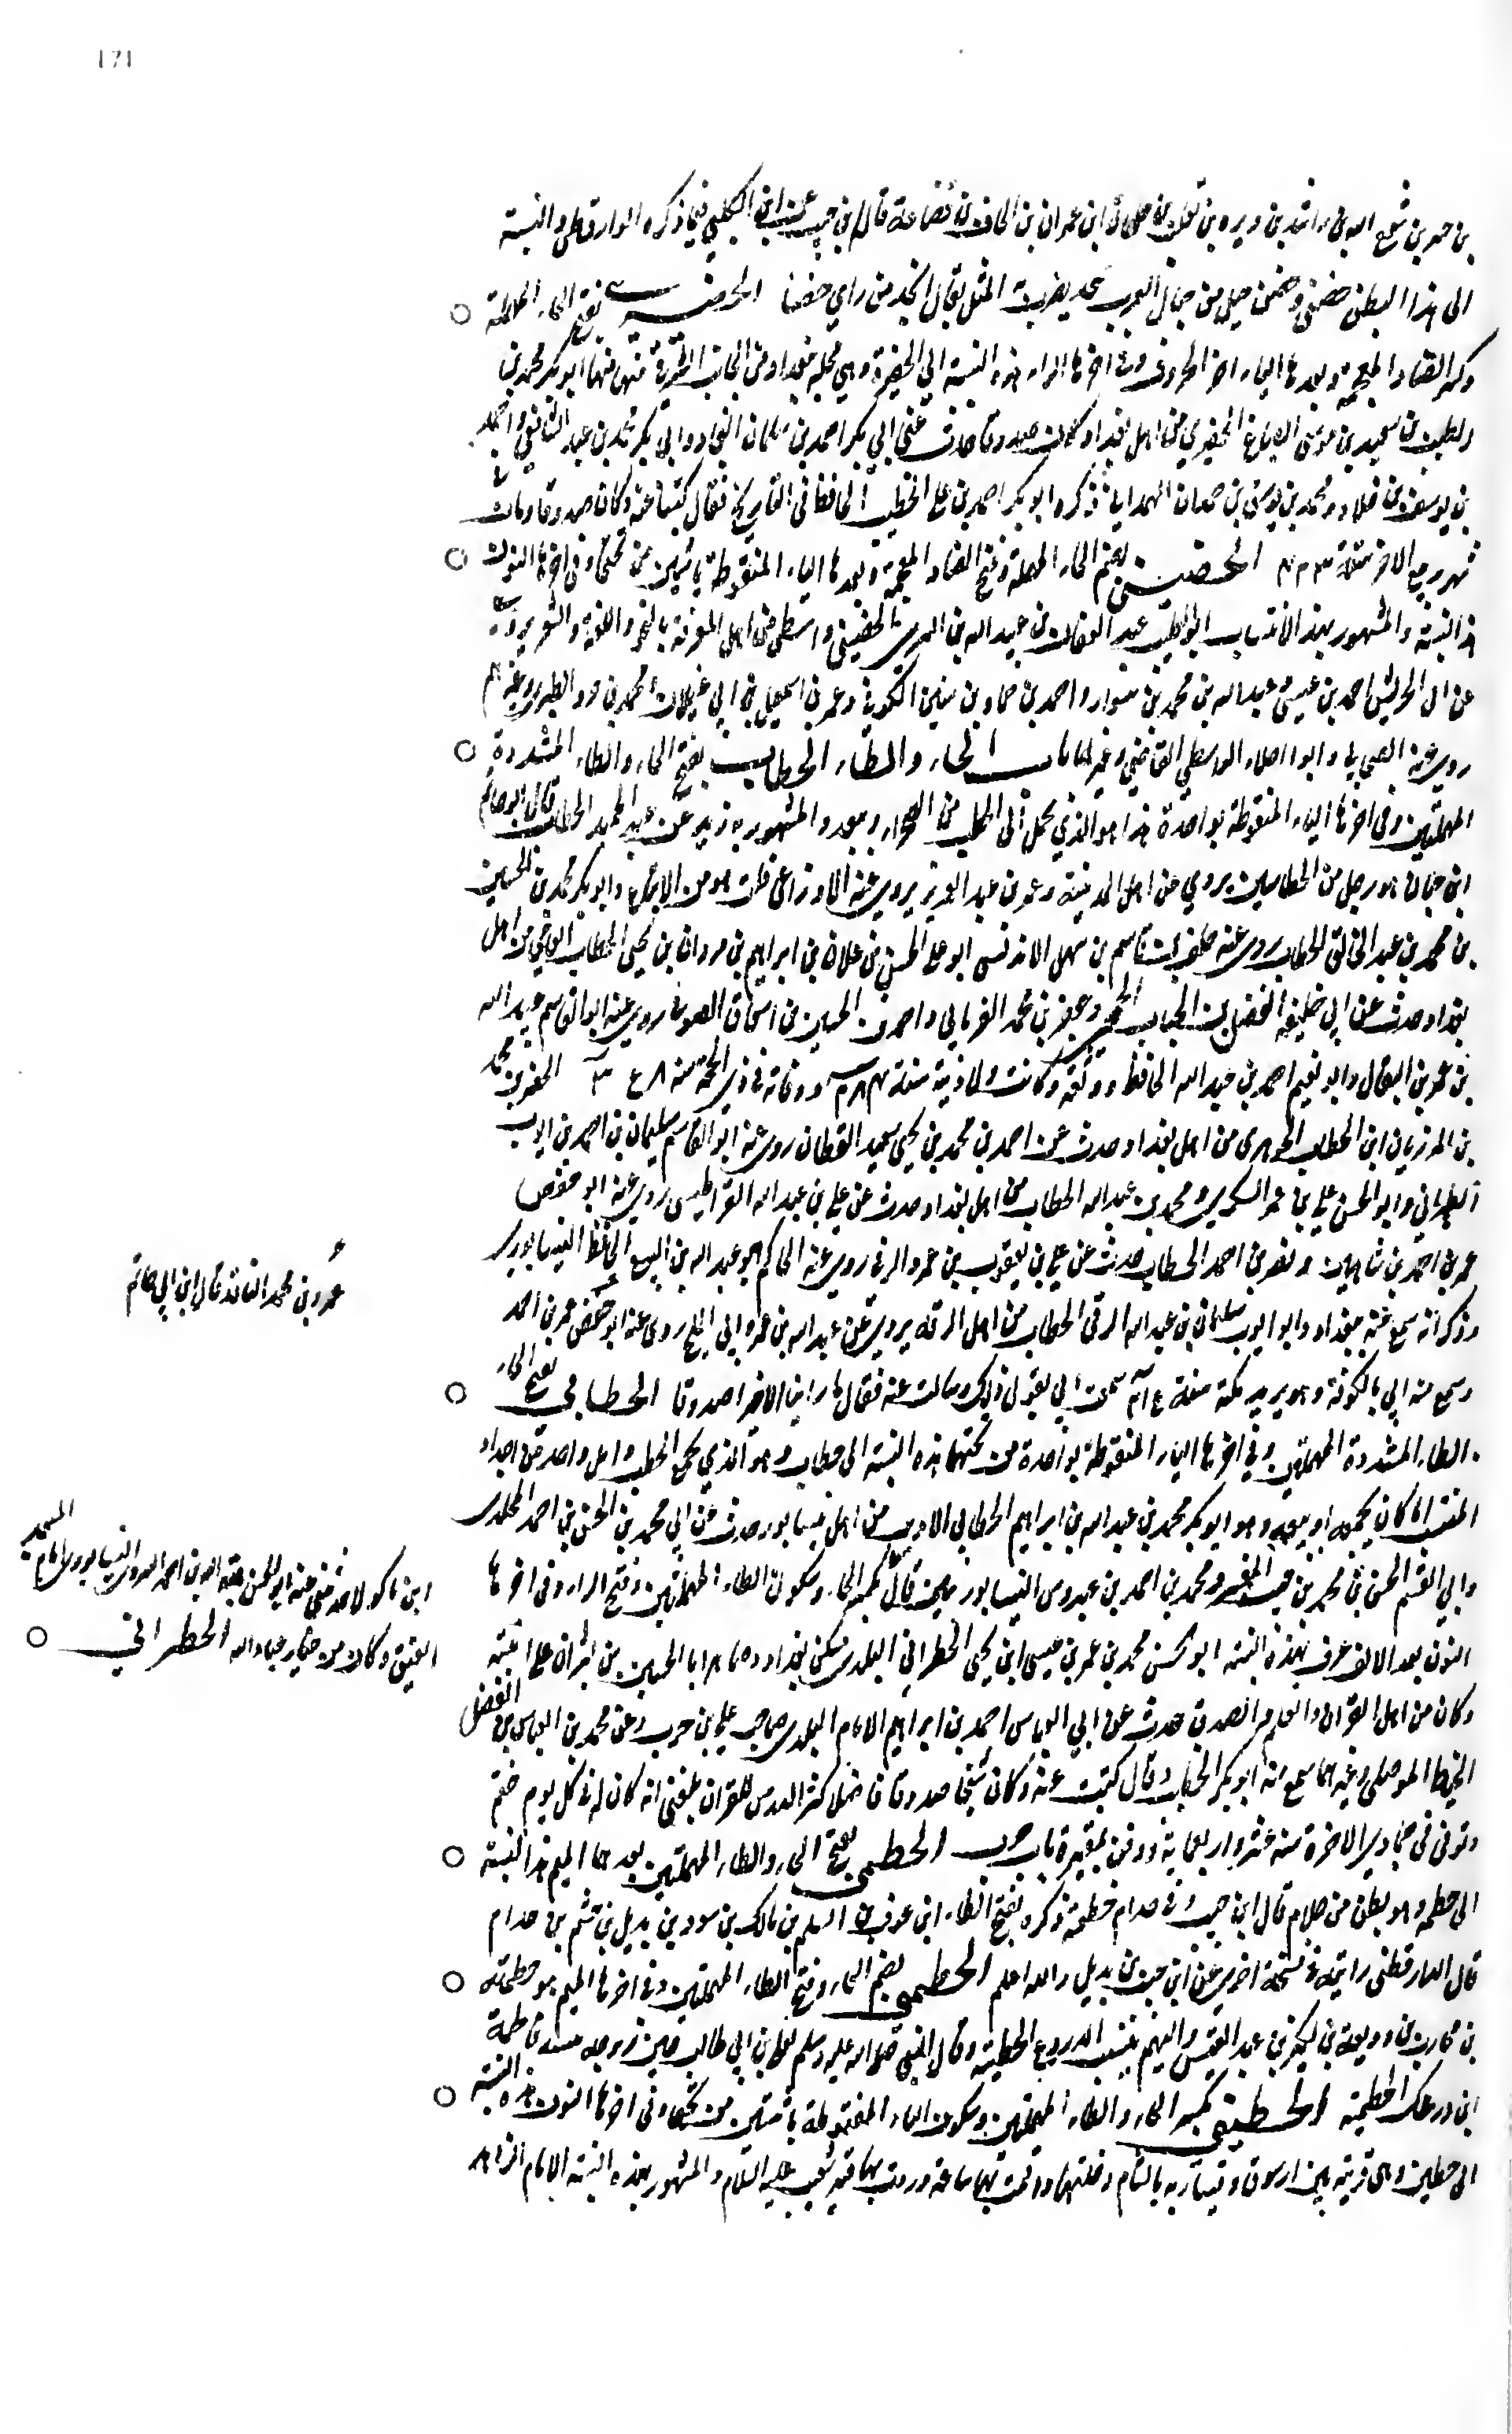 171
بن جسر بن شيع الله بن اسد بن وبره بن تغلب بن حلوان ابن عمران بن الحاف بن قضاعة قاله ابن حبيب عن ابن الكلبي فيما ذكره الدارقطني والنسبة
الى هذا البطن حضني وحضن جبل من جبال العرب بنجد يضرب به المثل يقال انجد من راى حضنا الحضيرى بفتح الحاء المهملة
وكسر الضاد المعجمة وبعدها الياء اخر الحروف وفي اخرها الراء هذه النسبة الي الحضيرة وهي محلة ببغداد من الجانب الشرقي منها ابو بكر محمد بن
الطيب بن سعيد بن موسى الصباغ الحضيري من اهل بغداد كان صدوقا حدث عن ابي بكر احمد بن سلمان النجاد وابي بكر محمد بن عبد الله الشافعي واحمد
بن يوسف بن خلاد ومحمد بن ذكره ابو بكر احمد بن علي الخطيب الحافظ في التاريخ فقال كتبنا عنه وكان صدوقا ومات
في شهر ربيع الاخر سنة الحضينى بضم الحاء المهملة وفتح الضاد المعجمة وبعدها الياء المنقوطة باثنتين من تحتها وفي اخرها النون
هذه النسبة والمشهور بهذا الانتساب ابو الطيب عبد الغفار بن عبيد الله بن السرى الحضيني واسطي من اهل المعرفة بالنحو واللغة والشعر
عن ابي الحريش احمد بن عيسى وعبد الله بن محمد بن سوار واحمد بن حماد بن سفين الكوفي وعمر بن اسمعيل بن ابي غيلان ومحمد بن جرير الطبري وغيرهم
روى عنه وابو العلاء الواسطي القاضي وغيرهما باب الحاء والطاء الحطاب بفتح الحاء والطاء المشددة
المهملتين وفي اخرها الباء المنقوطة بواحدة هذا هو الذي يحمل الحطب من الصحراء ويبيعه والمشهور به عبد الحميد الحطاب قال ابو حاتم
ابن حبان هو رجل من الحطابين يروي عن اهل المدينة وعمر بن عبد العزيز يروي عنه الاوزاعي قلت هو من الاتباع وابو بكر محمد بن الحسين
بن محمد بن عبد الخالق الحطاب روى عنه خلف بن قاسم بن سهل الاندلسى ابو علي الحسن بن علان بن ابراهيم بن مروان بن يحيى الحطاب الفامي من اهل
بغداد حدث عن ابي خليفة الفضل بن الحباب الجمحي وجعفر بن محمد الفريابي واحمد بن الحسين بن اسحاق الصوفي روى عنه ابو القاسم عبيد الله
بن عمر بن البقال وابو نعيم احمد بن عبد الله الحافظ ووثقه وكانت ولادته سنة ووفاته في ذي الحجة سنة الخضر بن محمد
بن المرزبان ابن الحطاب الجوهري من اهل بغداد حدث عن احمد بن محمد بن يحيى بن سعيد القطان روى عنه ابو القاسم سليمان بن احمد بن ايوب
الطبراني وابو الحسن علي بن عمر السكري ومحمد بن عبد الله الحطاب من اهل بغداد حدث عن علي بن عبد الله القراطيسى روى عنه ابو حفص
عمر بن احمد بن شاهين ونصر بن احمد الحطاب حدث عن علي بن يعقوب بن عمرو الرقي روى عنه الحاكم ابو عبد الله بن البيع الحافظ النيسابورى
وذكر انه سمع عنه ببغداد وابو ايوب سليمان بن عبيد الله الرقي الحطاب من اهل الرقة يروي عن عبيد الله بن عمرو وابي المليح روى عنه ابو حفص عمر بن احمد
وسمع منه ابي بالكوفة وهو يريد مكة سنة سمعت ابي يقول ذلك وسالت عنه فقال ما راينا الا خيرا صدوقا الحطابي بفتح الحاء
والطاء المشددة المهملتين وفي اخرها الباء المنقوطة بواحدة من تحتها هذه النسبة الى حطاب وهو الذي يجمع الحطب ولعل واحدا من اجداد
المنتسب كان يجمعه او يبيعه وهو ابو بكر محمد بن عبد الله بن ابراهيم الحطابي الاديب من اهل نيسابور حدث عن ابي محمد بن الحسن بن احمد المخلدى
وابي القسم الحسن بن محمد بن حبيب المفسر ومحمد بن احمد بن عبدوس النيسابوريين قال بكسر الحاء وسكون الطاء المهملتين وفتح الراء وفي اخرها
النون بعد الالف عرف بهذه النسبة ابو الحسن محمد بن عمر بن عيسى ابن يحيى الحطراني البلدى سكن بغداد ابا الحسين بن بشران على ابنته
وكان من اهل القران والعلم والصدق حدث عن ابي العباس احمد بن ابراهيم الامام البلدى صاحب علي بن حرب وعن محمد بن العباس بن الفضل
الخياط الموصلي وغيرهما سمع منه ابو بكر الخطيب وقال كتبت عنه وكان شيخا صدوقا فاضلا كثر الدرس للقران بلغني انه كان له في كل يوم ختم
وتوفي في جمادي الاخرة سنة عشر واربعماية ودفن بمقبرة باب حرب الحطمى بفتح الحاء والطاء المهملتين بعدهما الميم هذه النسبة
الى حطمه وهو بطن من جذام قال ابن حبيب وفي جذام حطمة ذكره بفتح الطاء ابن عوف بن اسلم بن مالك بن سود بن بديل بن حشم بن جذام
قال الدارقطني رايته في نسخة اخرى عن ابن حبيب بن بديل والله اعلم الحطمى بضم الحاء وفتح الطاء المهملتين وفي اخرها الميم هو حطمة
بن محارب بن وديعة بن لكيز بن عبد القيس واليهم ينسب الدروع الحطمية وقال النبي صلى الله عليه وسلم لعلي بن ابي طالب حين زوجه فاطمة
اين درعك الحطمية الحطينى بكسر الحاء والطاء المهملتين وسكون الياء المنقوطة باثنتين من تحتها وفي اخرها النون هذه النسبة
الى حطين وهي قرية بين ارسوف وقيسارية بالشام دخلتها واقمت بها ساعة وزرت بها قبر شعيب عليه السلام والمشهور بهذه النسبة الامام الزاهد
عمرو بن محمد الناقد قال ابن ابي حاتم
ابن ماكولا حدثني عنه ابو الحسن هبة الله بن احمد النيسابوري امام المسجد
العتيق وكان من خيار عباد الله الحطراني